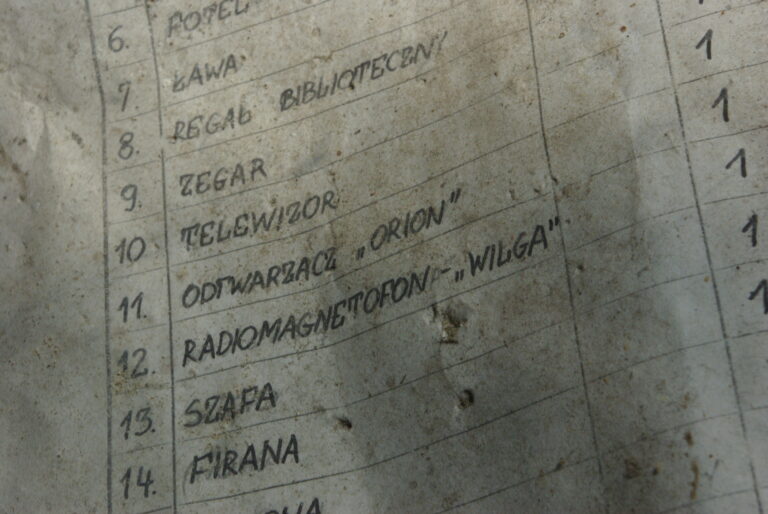 6. FOTEL
7. ŁAWA
8. REGAŁ BIBLIOTECZNY
9. ZEGAR
10 TELEWIZOR 1
11. ODTWARZACZ „ORION” 1
12. RADIOMAGNETOFON - „WILGA” 1
13. SZAFA 1
14. FIRANA 1